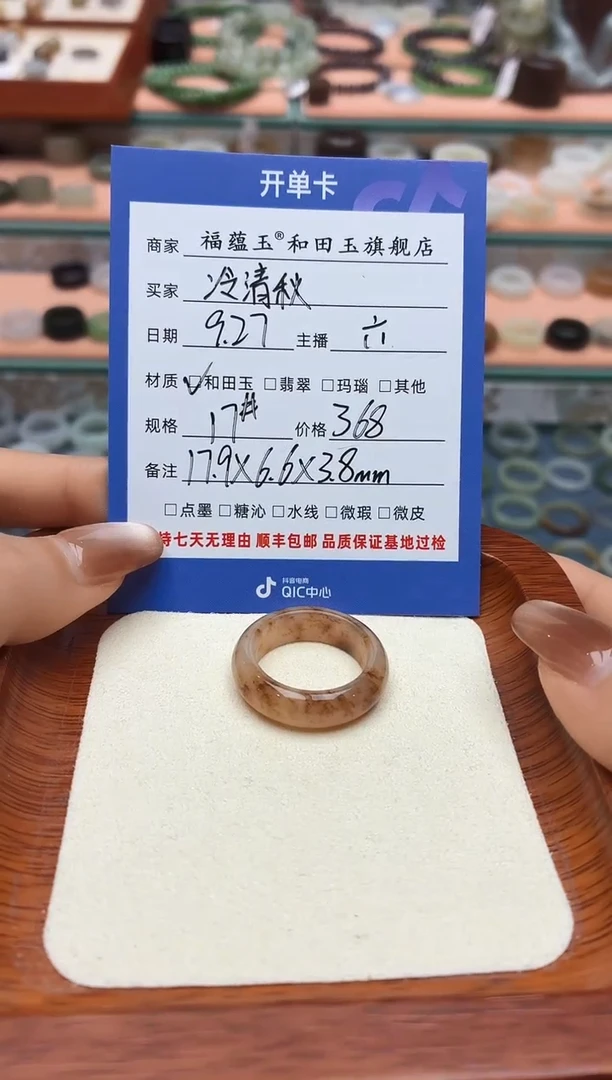 开单卡
商家 福蕴玉®和田玉旗舰店
买家 冷清秋
日期 9.27 主播 六
材质 ☑和田玉 □翡翠 □玛瑙 □其他
规格 17# 价格 368
备注 17.9X6.6X3.8mm
□点墨 □糖沁 □水线 □微瑕 □微皮
持七天无理由 顺丰包邮 品质保证基地过检
抖音电商
QIC中心